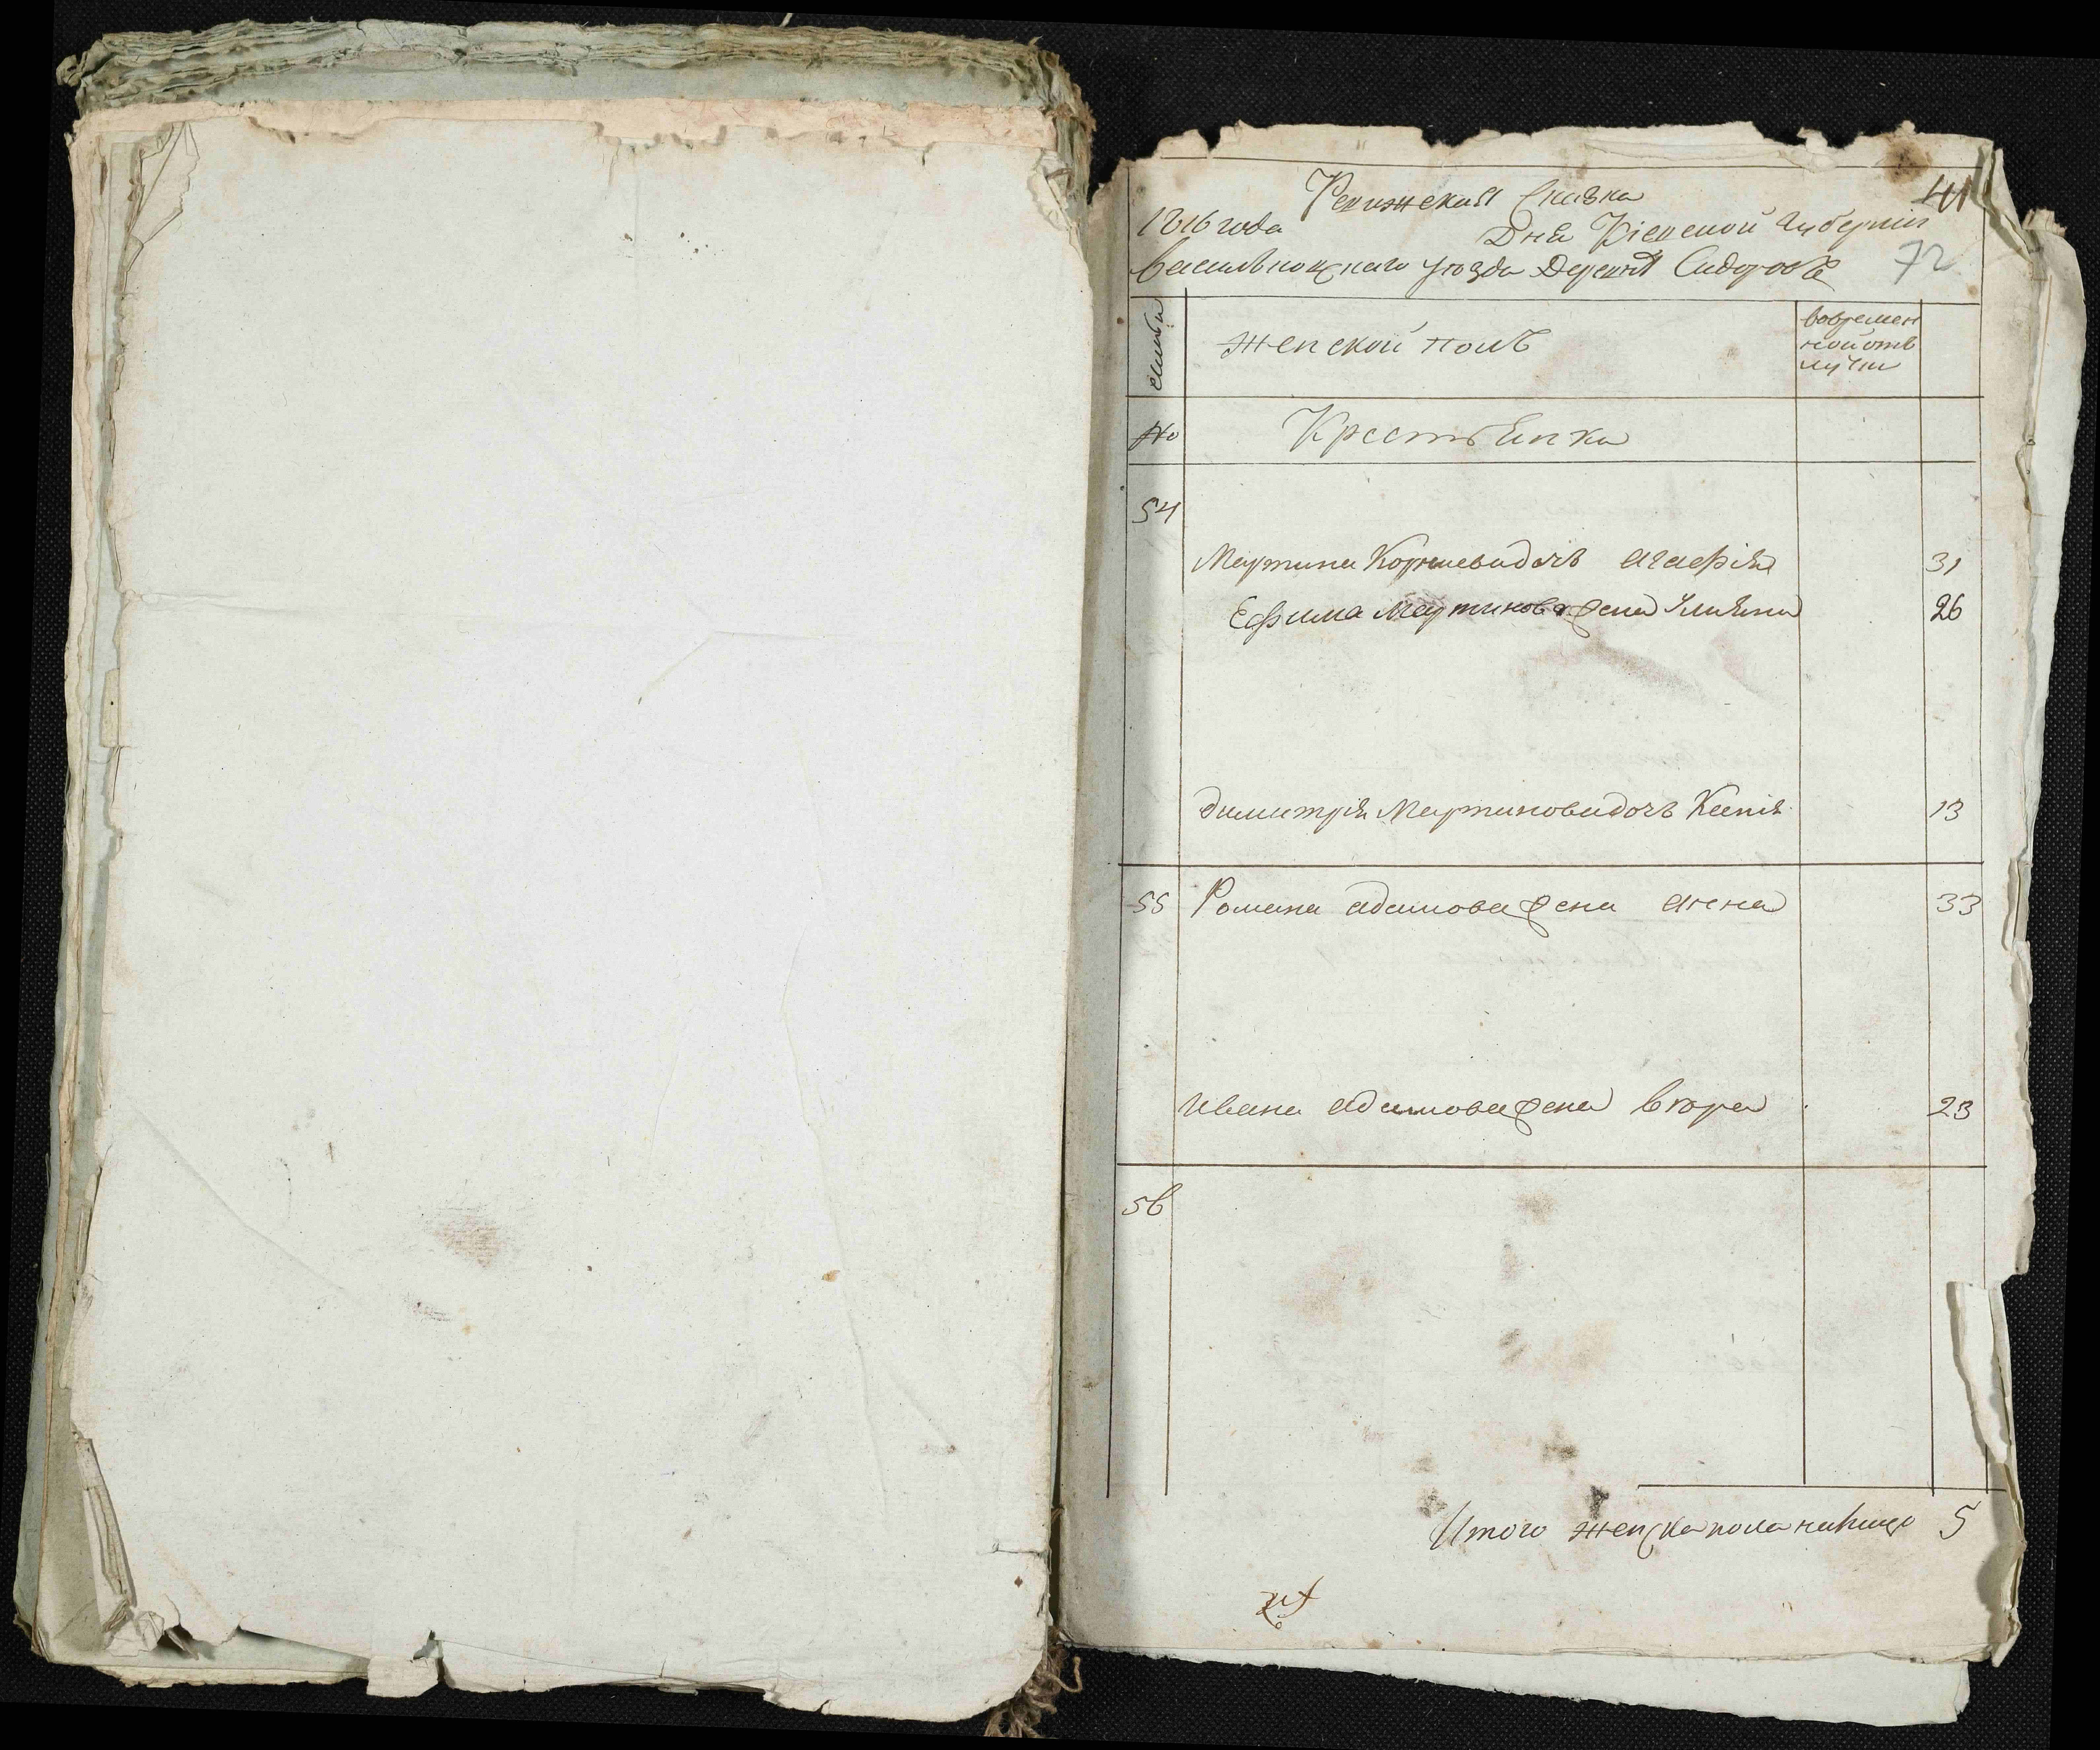 Ревижская Сказка
41
1816 года
Дня Кіевской Губерніи
72
васильковскаго уезда Деревни Сидоровѣ
семьи
женской полъ
вовремен
ной отъ
лучки
№
Крестьянки
54
Мартина Корнеева дочь агафія 31
Ефима Мартинова жена Улияна 26
димитрія Мартинова дочь Ксенія 13
55 Романа адамова жена анна 33
ивана адамова жена вѣра 23
56
Итого женска пола налицо 5